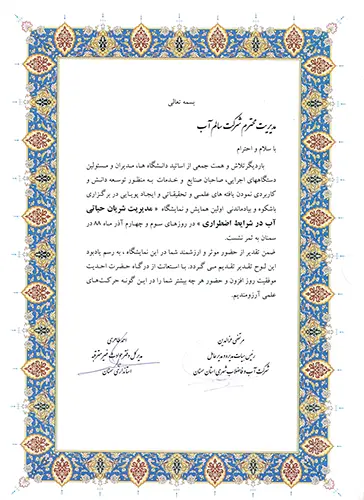 بسمه تعالی
مدیریت محترم شرکت سالم آب
با سلام و احترام
باردیگر تلاش و همت جمعی از اساتید دانشگاه ها، مدیران و مسئولین
دستگاههای اجرایی، صاحبان صنایع و خدمات به منظور توسعه دانش و
کاربردی نمودن یافته های علمی و تحقیقاتی و ایجاد پویایی در برگزاری
باشکوه و بیادماندنی اولین همایش و نمایشگاه «مدیریت شریان حیاتی
آب در شرایط اضطراری» در روزهای سوم و چهارم آذر ماه ۸۸ در
سمنان به ثمر نشست.
ضمن تقدیر از حضور موثر و ارزشمند شما در این نمایشگاه ، به رسم یادبود
این لوح تقدیر تقدیم می گردد. با استعانت از درگاه حضرت احدیت
موفقیت روز افزون و حضور هر چه بیشتر شما را در این گونه حرکت‌های
علمی آرزومندیم.
مرتضی خوالدین
رئیس هیات مدیره و مدیر عامل
شرکت آب و فاضلاب شهری استان سمنان
مدیر کل دفتر
استانداری سمنان